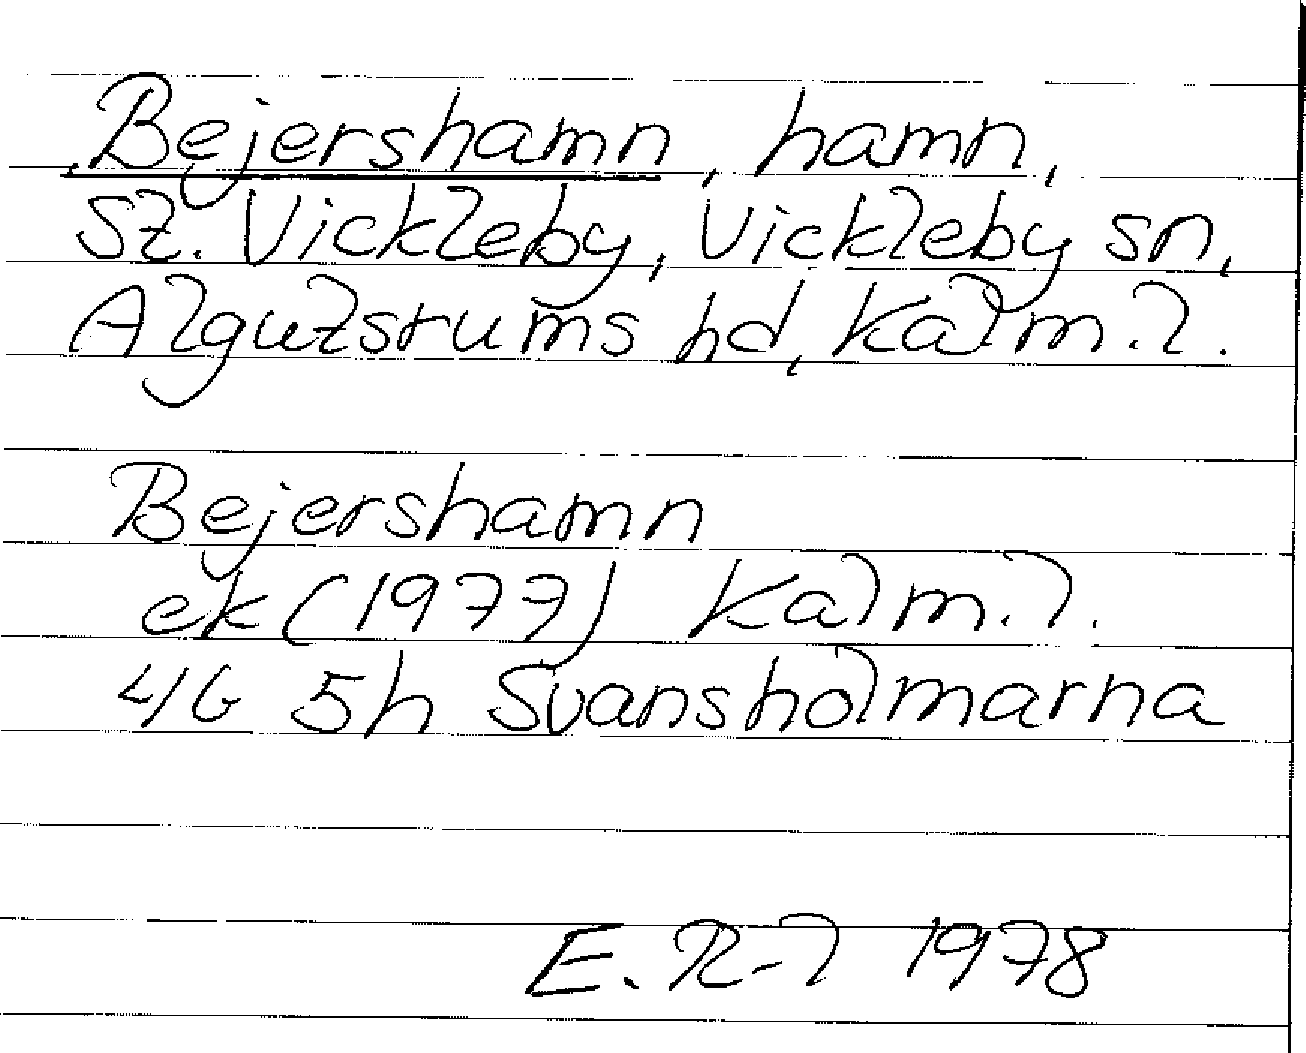 Bejershamn, hamn,
St. Vickleby, Vickleby sn,
Algutsrums hd, Kalm. l.
Bejershamn
ek (1977) Kalm. l.
4G 5h Svansholmarna
E. R-l 1978